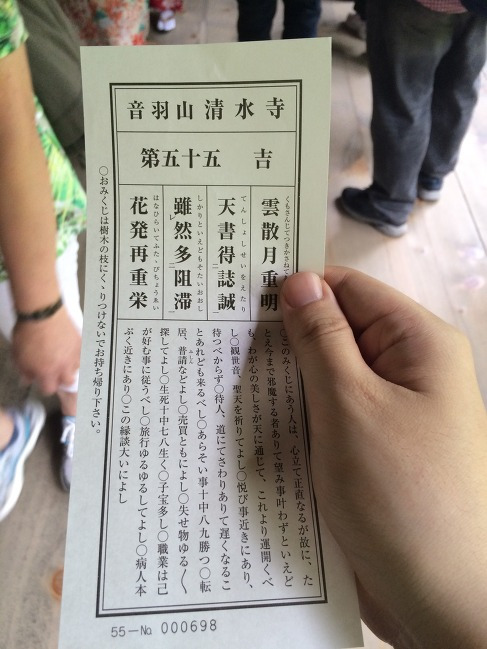 音羽山 清水寺
第五十五 吉
雲散月重明
くもさんじてつきかさねて
天書得誌誠
てんしょしせいをえたり
雖然多阻滞
しかりといえどもそたいおおし
レ 二 一
花発再重栄
はなひらいてふたゝびちょうえい
〇このみくじにあう人は、心立て正直なるが故に、た
とえ今まで邪魔する者ありて望み事叶わずといえど
も、わが心の美しさが天に通じて、これより運開くべ
し〇観世音、聖天を祈りてよし〇悦び事近きにあり、
待つべからず〇待人、道にてさわりありて遅くなるこ
とあれども来るべし〇あらそい事十中八九勝つ〇転
居、普請などよし〇売買ともによし〇失せ物ゆるゆる〳〵
探してよし〇生死十中七八生く〇子宝多し〇職業は己
が好む事に従うべし〇旅行ゆるゆるしてよし〇病人本
ぶく近きにあり〇この縁談大いによし
〇おみくじは樹木の枝にくゝりつけないでお持ち帰り下さい。
55-No 000698